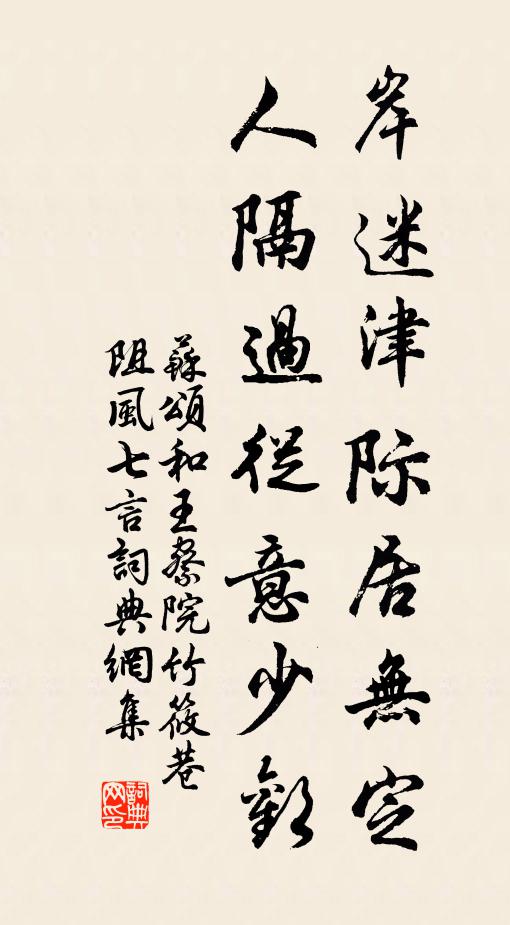 岸迷津际居無定
人隔過從意少歡
蘇頌和王察院竹筱巷
阻風七言詞典網集
詞典网印